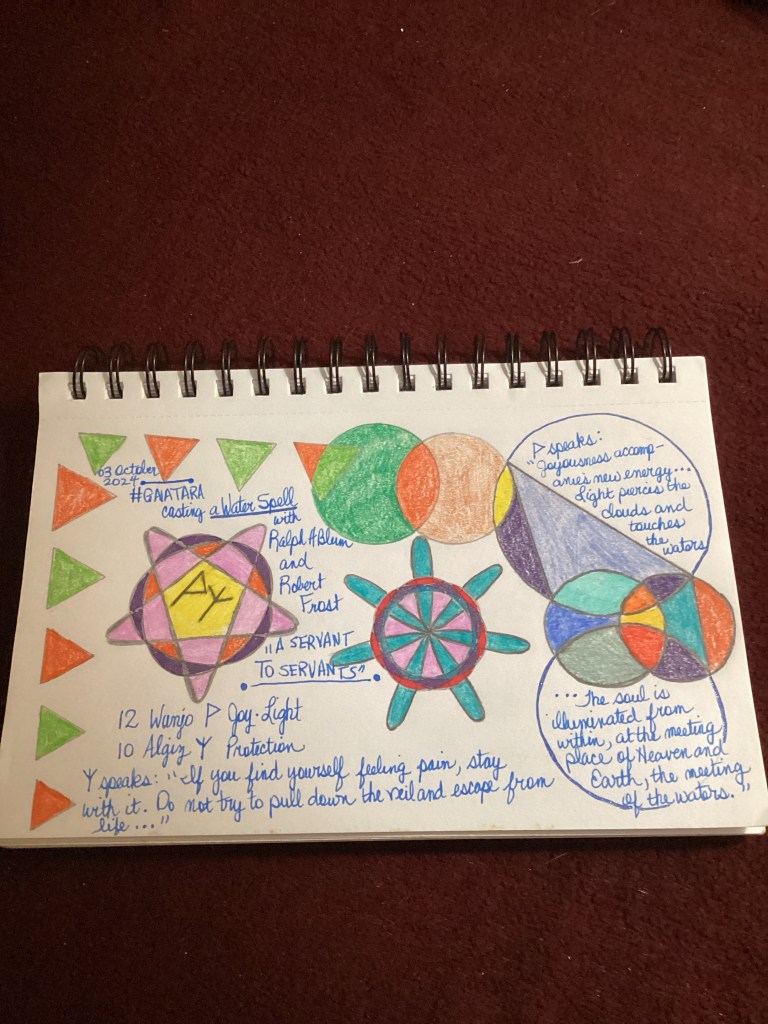 03 October
2024
#GAIATARA
casting a Water Spell
with
Ralph H Blum
and
Robert
Frost
"A SERVANT
TO SERVANTS"
ᚹᛉ
12 Wunjo ᚹ Joy·Light
10 Algiz ᛉ Protection
ᛉ speaks: "If you find yourself feeling pain, stay
with it. Do not try to pull down the veil and escape from
life ..."
ᚹ speaks:
"Joyousness accomp-
anies new energy...
Light pierces the
clouds and
touches
the
waters
... The soul is
illuminated from
within, at the meeting
place of Heaven and
Earth, the meeting
of the waters."